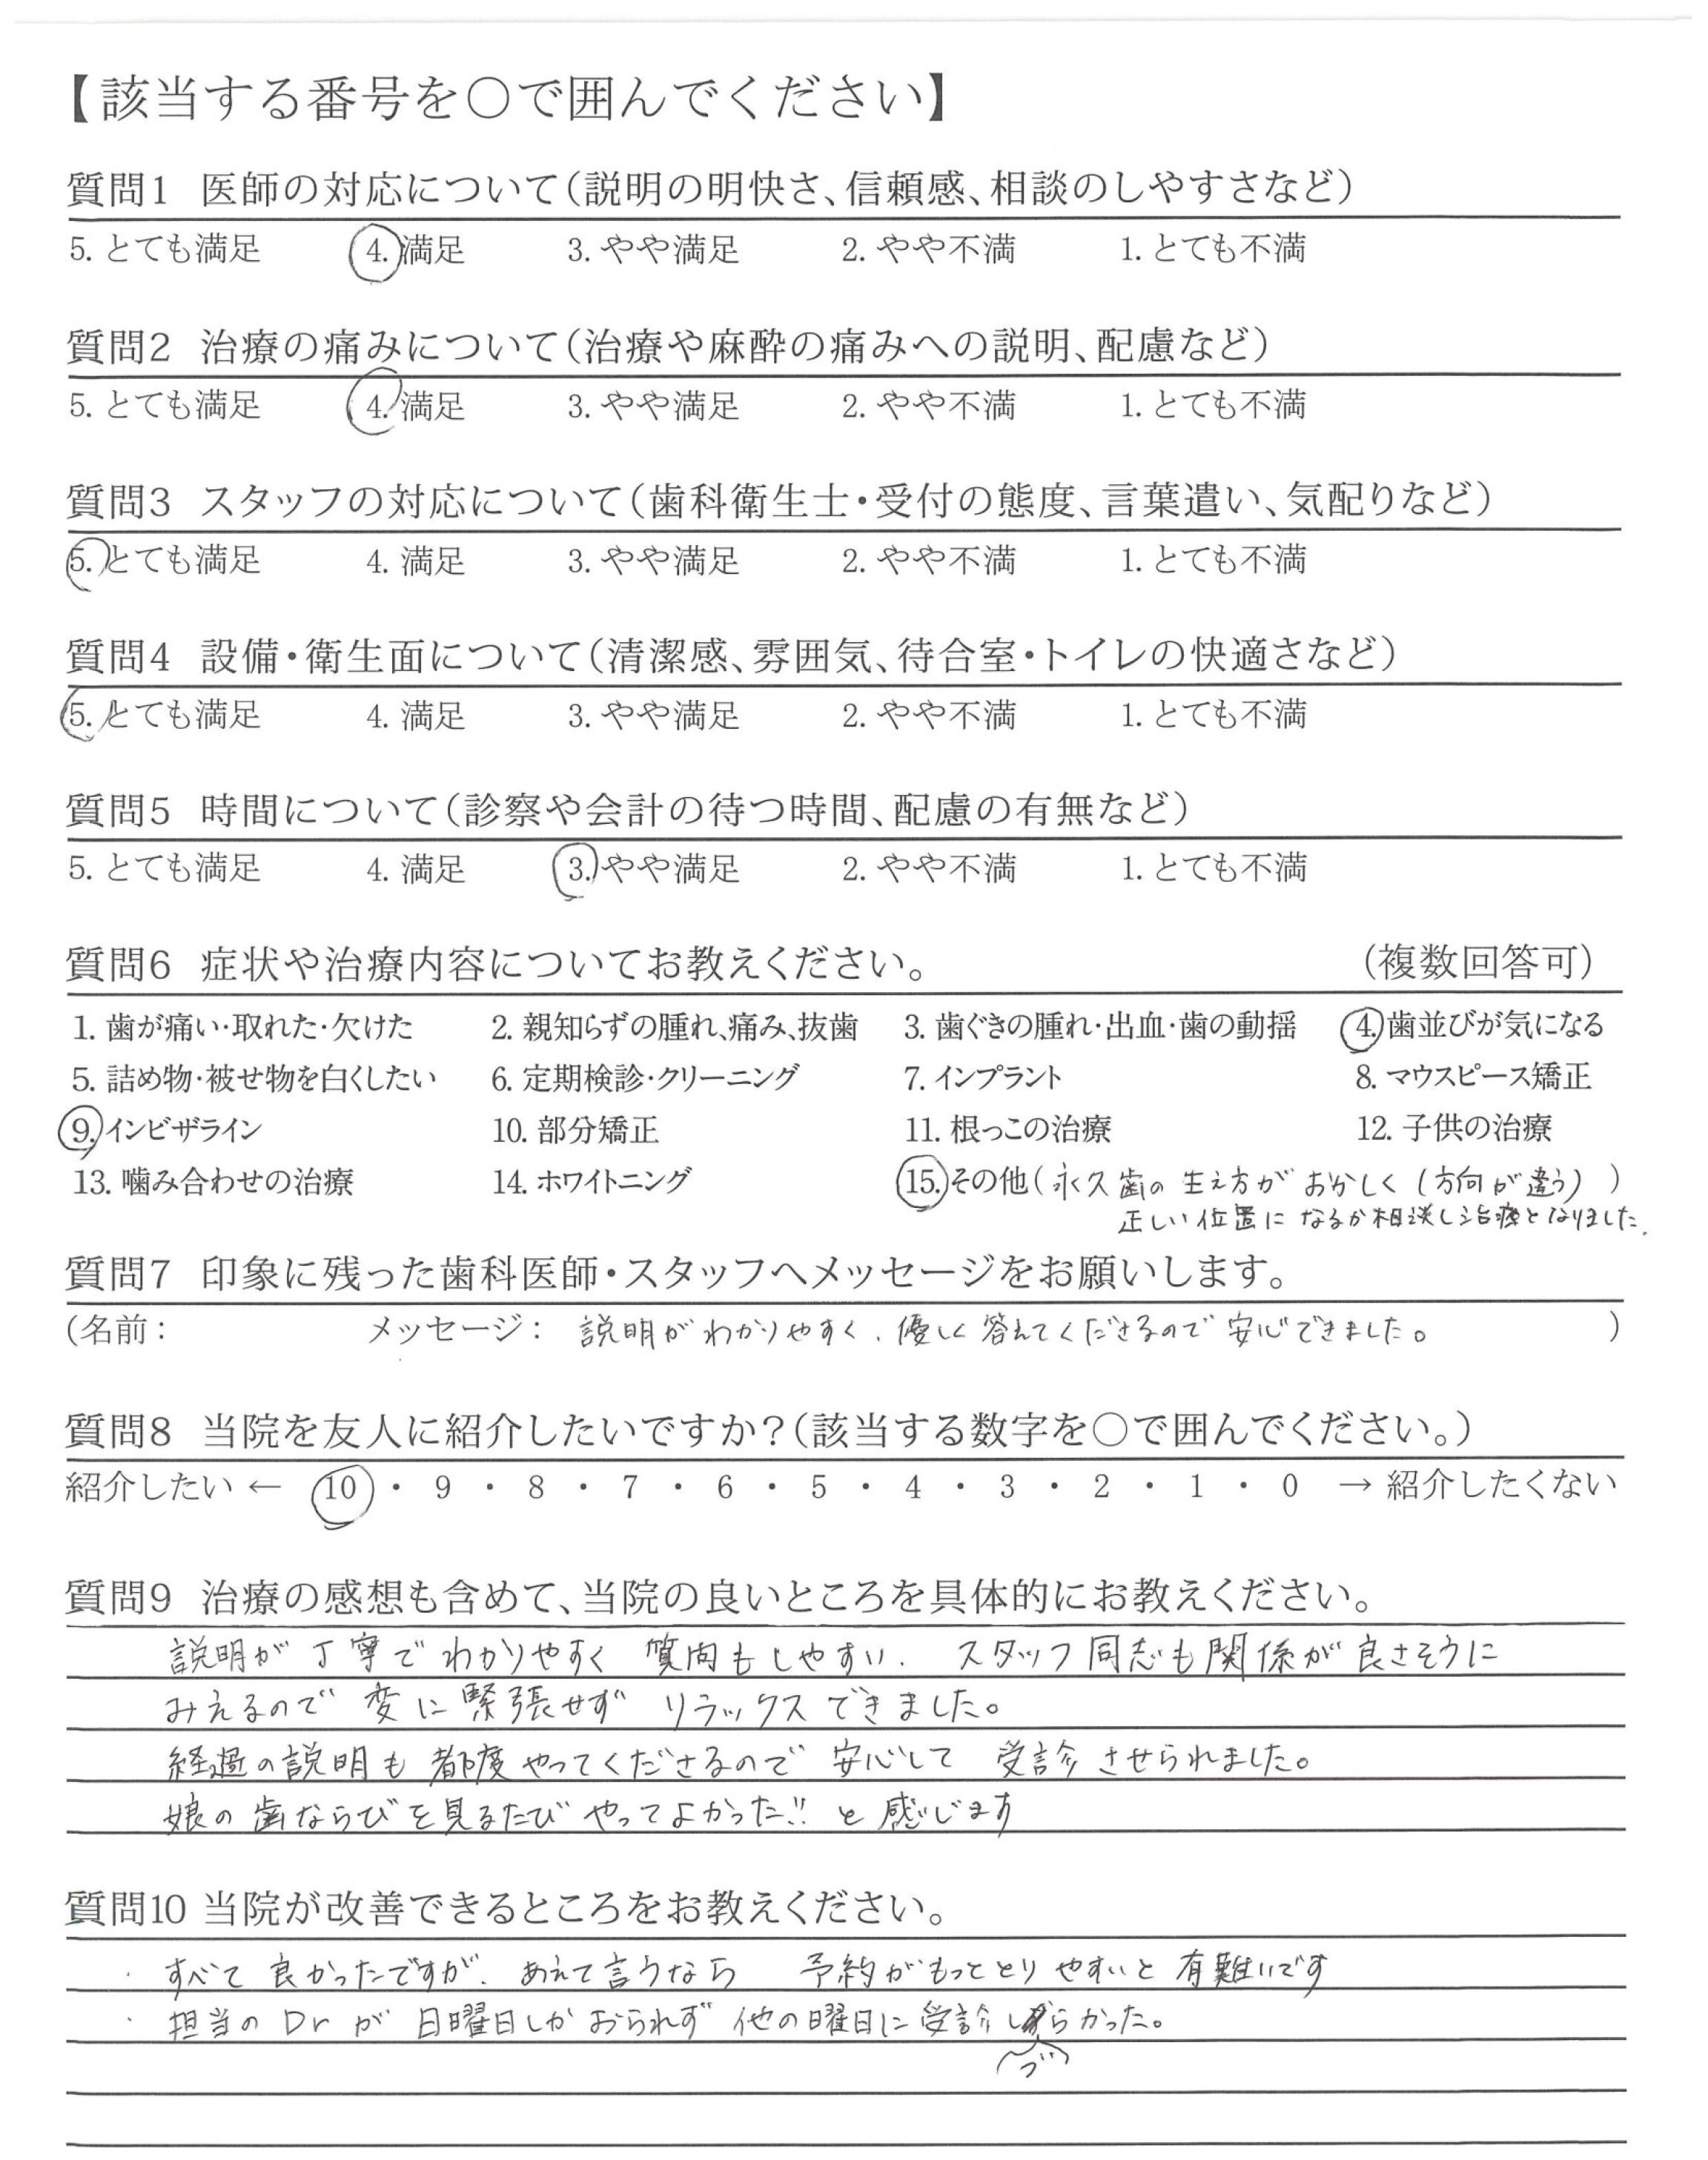 【該当する番号を○で囲んでください】
質問1 医師の対応について(説明の明快さ、信頼感、相談のしやすさなど)
5. とても満足 4. 満足 3. やや満足 2. やや不満 1. とても不満
質問2 治療の痛みについて(治療や麻酔の痛みへの説明、配慮など)
5. とても満足 4. 満足 3. やや満足 2. やや不満 1. とても不満
質問3 スタッフの対応について(歯科衛生士・受付の態度、言葉遣い、気配りなど)
5. とても満足 4. 満足 3. やや満足 2. やや不満 1. とても不満
質問4 設備・衛生面について(清潔感、雰囲気、待合室・トイレの快適さなど)
5. とても満足 4. 満足 3. やや満足 2. やや不満 1. とても不満
質問5 時間について(診察や会計の待つ時間、配慮の有無など)
5. とても満足 4. 満足 3. やや満足 2. やや不満 1. とても不満
質問6 症状や治療内容についてお教えください。 (複数回答可)
1. 歯が痛い・取れた・欠けた 2. 親知らずの腫れ、痛み、抜歯 3. 歯ぐきの腫れ・出血・歯の動揺 4. 歯並びが気になる
5. 詰め物・被せ物を白くしたい 6. 定期検診・クリーニング 7. インプラント 8. マウスピース矯正
9. インビザライン 10. 部分矯正 11. 根っこの治療 12. 子供の治療
13. 噛み合わせの治療 14. ホワイトニング 15. その他(永久歯の生え方がおかしく(方向が違う) )
正しい位置になるか相談し治療となりました.
質問7 印象に残った歯科医師・スタッフへメッセージをお願いします。
(名前: メッセージ: 説明がわかりやすく、優しく答えてくださるので安心できました。 )
質問8 当院を友人に紹介したいですか?(該当する数字を○で囲んでください。)
紹介したい ← 10 ・ 9 ・ 8 ・ 7 ・ 6 ・ 5 ・ 4 ・ 3 ・ 2 ・ 1 ・ 0 → 紹介したくない
質問9 治療の感想も含めて、当院の良いところを具体的にお教えください。
説明が丁寧でわかりやすく 質問もしやすい. スタッフ同志も関係が良さそうに
みえるので変に緊張せず リラックスできました。
経過の説明も都度やってくださるので 安心して 受診させられました。
娘の歯ならびを見るたび やってよかった!! と感じます
質問10 当院が改善できるところをお教えください。
・すべて良かったですが、あえて言うなら 予約がもっととりやすいと有難いです
・担当のDrが日曜日しかおられず 他の曜日に受診しづらかった。